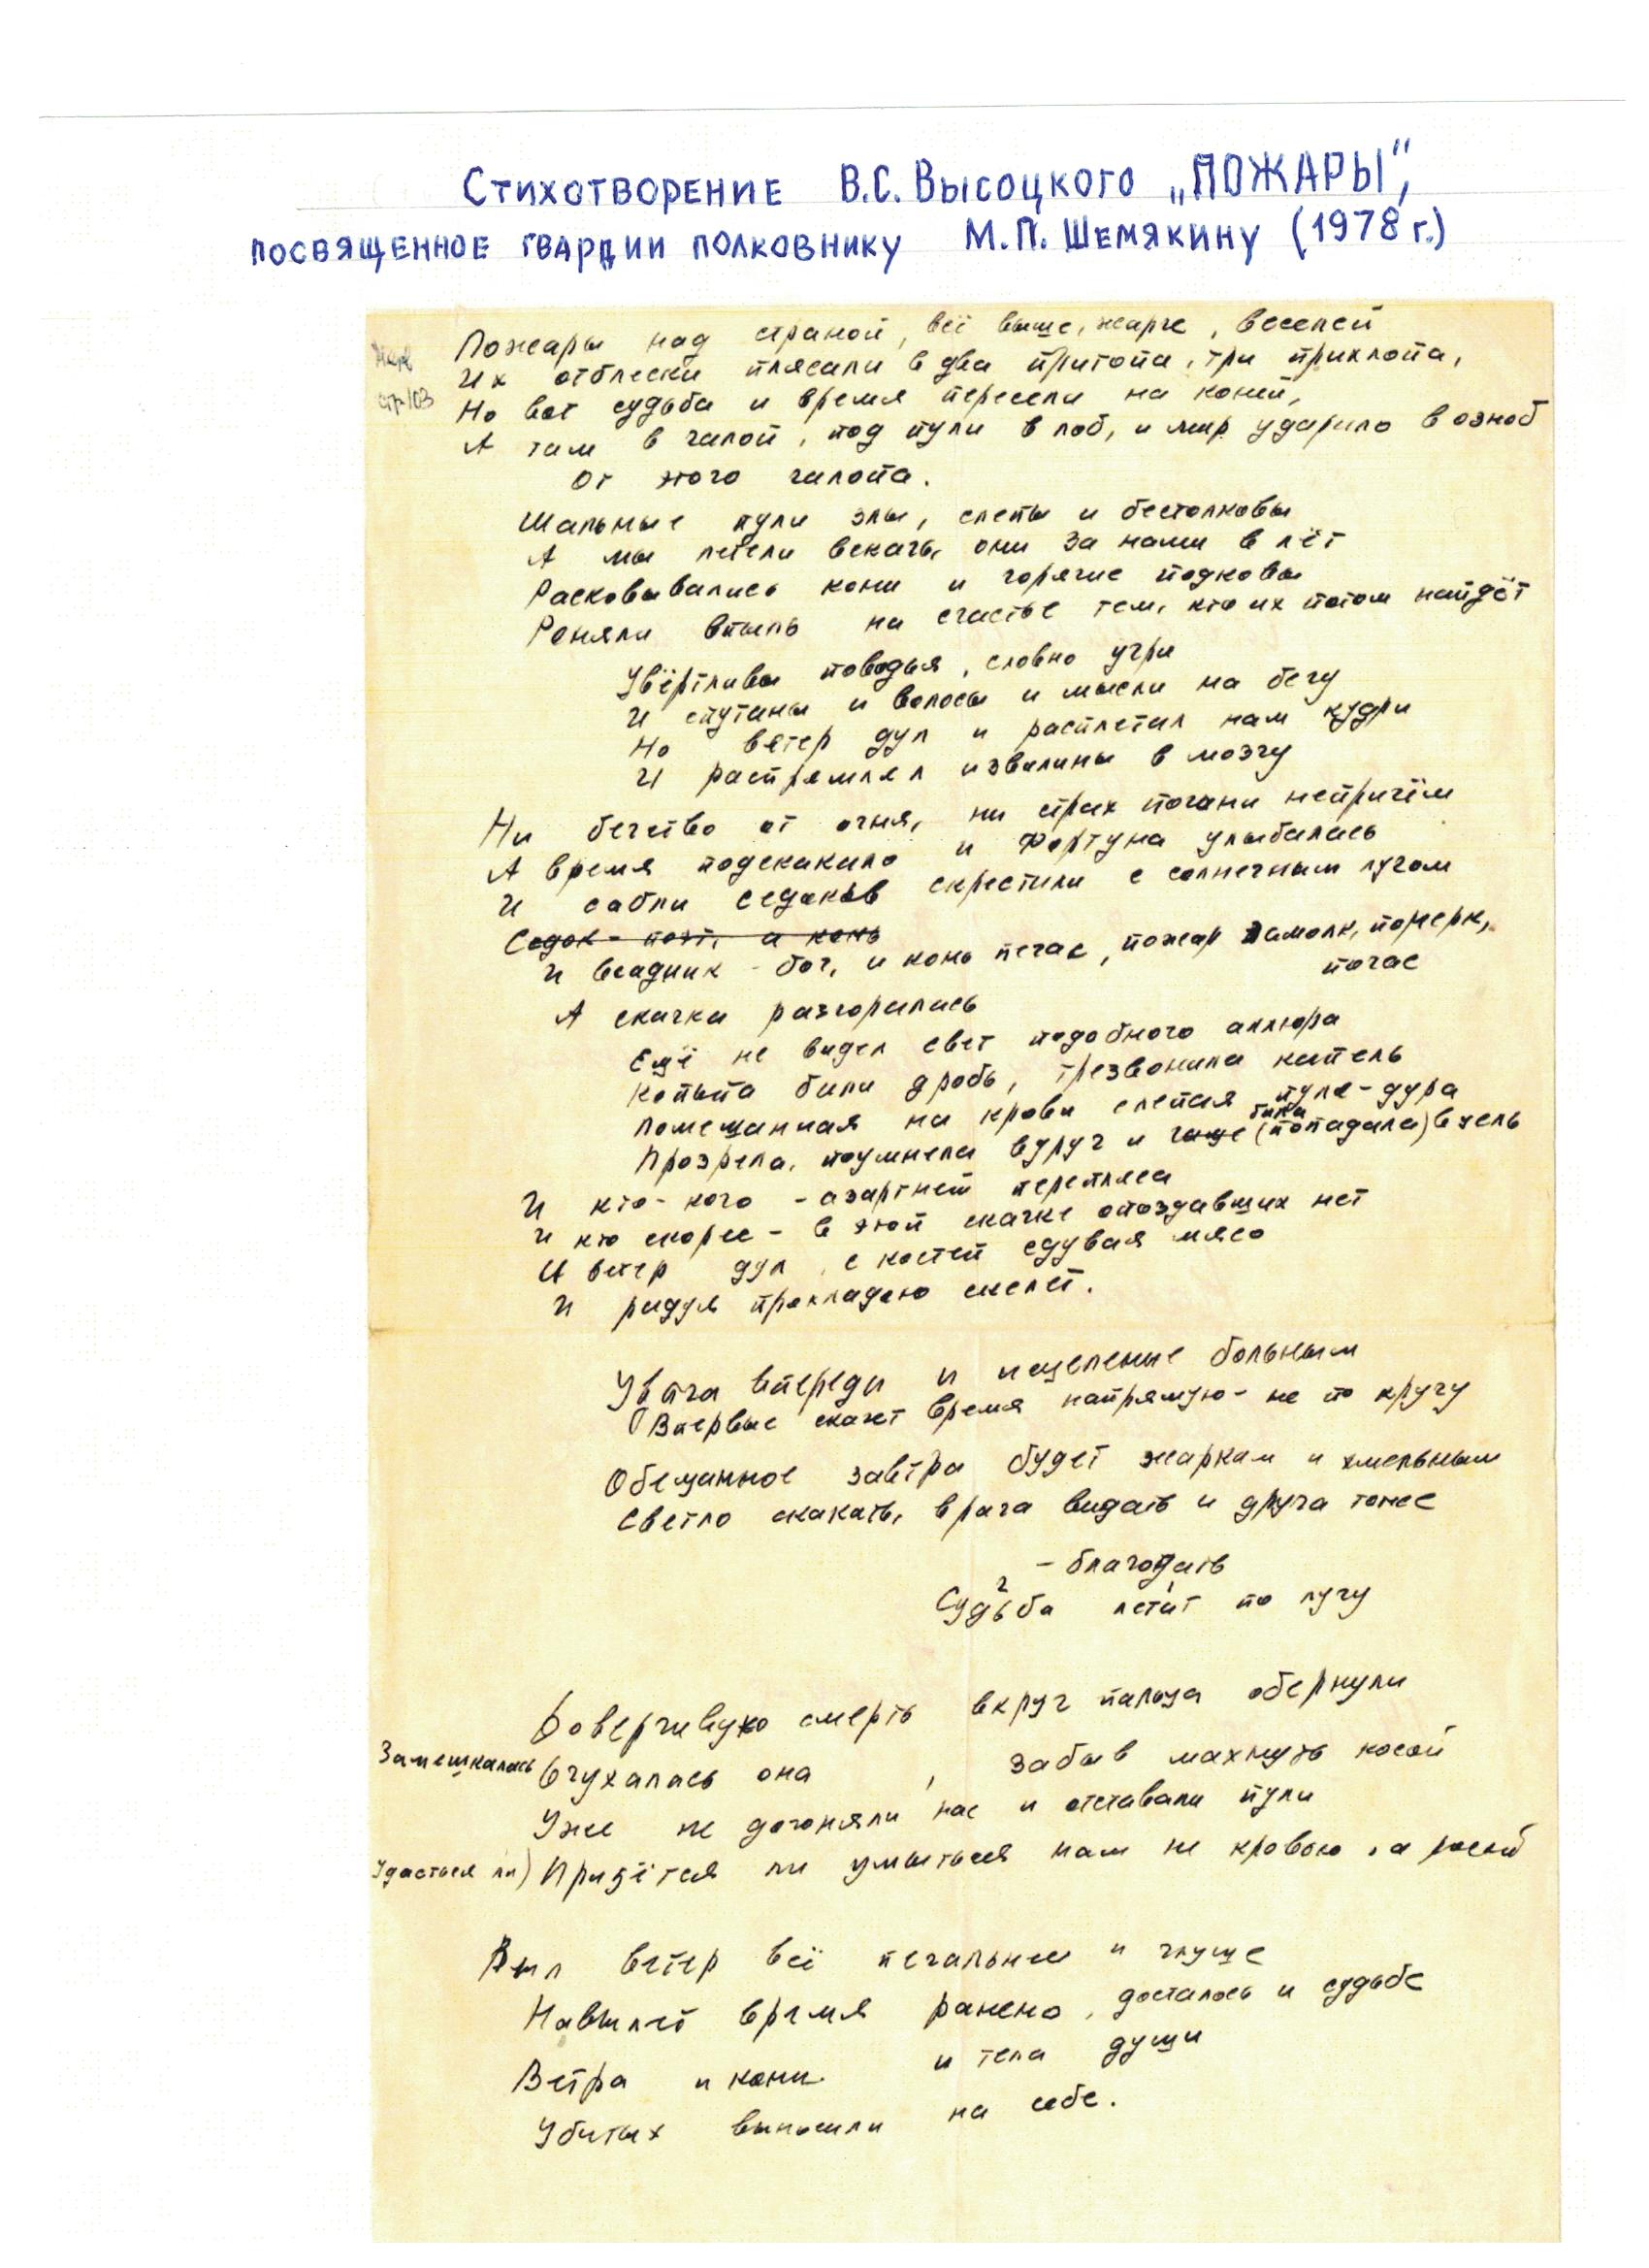 Стихотворение В.С. Высоцкого „ПОЖАРЫ“,
посвященное гвардии полковнику М.П. Шемякину (1978 г.)
Пожары над страной, всё выше, жарче, веселей
Их отблески плясали в два притопа, три прихлопа,
стр 103
Но вот судьба и время пересели на коней,
А там в галоп, под пули в лоб, и мир ударило в озноб
От этого галопа.
Шальные пули злы, слепы и бестолковы
А мы летели вскачь, они за нами в лёт
Расковывались кони и горячие подковы
Роняли впыль на счастье тем, кто их потом найдёт
Увёртливы поводья, словно угри
И спутаны и волосы и мысли на бегу
Но ветер дул и расплетал нам кудри
И распрямлял извилины в мозгу
Ни бегство от огня, ни страх погони непричём
А время подскакало и Фортуна улыбалась
И сабли седоков скрестили с солнечным лучом
Седок - поэт, а конь
И всадник - бог, и конь пегас, пожар замолк, померк,
погас
А скачка разгоралась
Ещё не видел свет подобного аллюра
Копыта били дробь, трезвонила капель
Помешанная на крови слепая пуля-дура
Прозрела, поумнела вдруг и чаще (попадала) в цель
И кто-кого - азартней перепляса
И кто скорее - в этой скачке опоздавших нет
И ветер дул, с костей сдувая мясо
И радуя прохладою скелет.
Удача впереди и исцеление больным
Впервые скачет время напрямую - не по кругу
Обещанное завтра будет жарким и хмельным
Светло скакать, врага видать и друга тоже
- благодать
Судьба летит по лугу
Доверчивую смерть вкруг пальца обернули
Замешкалась (очухалась она , забыв махнуть косой
Уже не догоняли нас и отставали пули
Удастся ли) Придётся ли умыться нам не кровью, а росой
Выл ветер всё печальнее и глуше
Навылет время ранено, досталось и судьбе
Ветра и кони и тела души
Убитых выносили на себе.